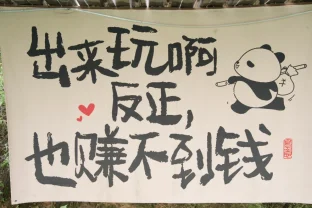 出来玩啊
反正，
也赚不到钱